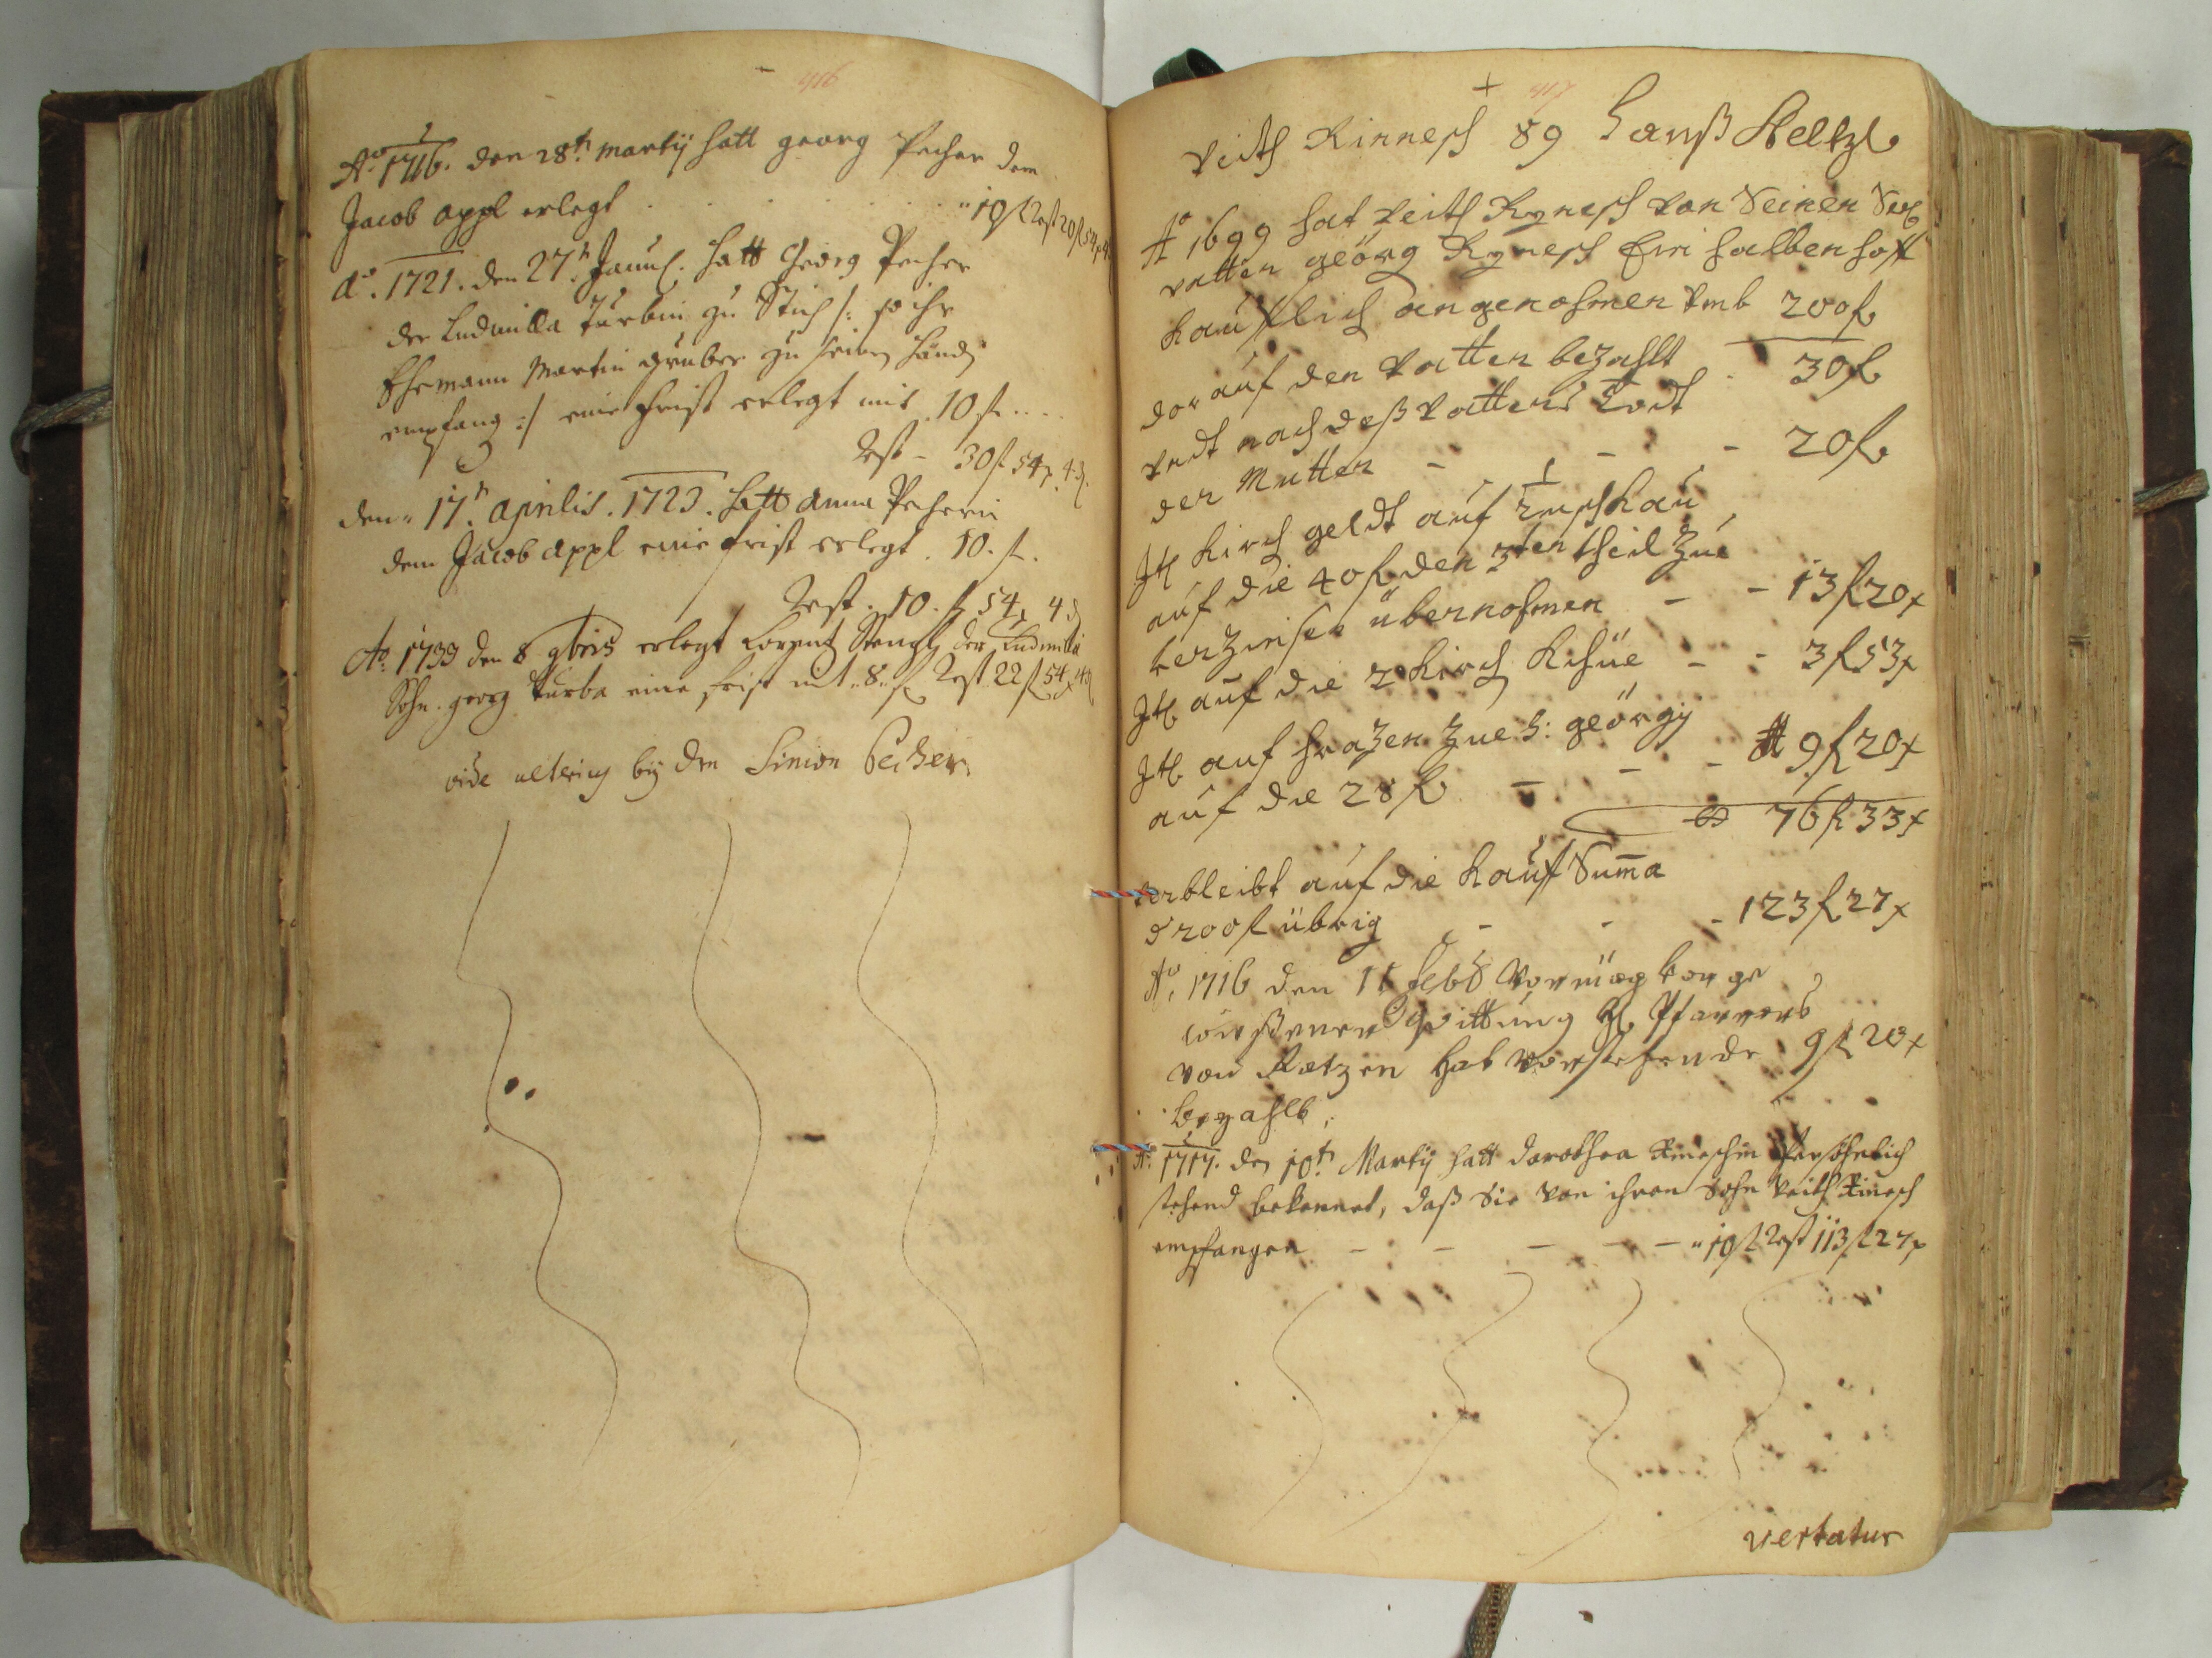 416
Aō 1716. den 28t Martij hatt georg Pecher dem
Jacob appl erlegt . . . . . " 10 f Rest 20 f 54 x 4
Aō. 1721. den 27t Januar. hatt Georg Pecher
der Ludmilla Turbin zu Stich /: so ihr
Ehemann Martin Gruber zu seinen händ
empfang :/ eine frist erlegt mit 10 f. . . .
Rest - 30 f 54 x. 4 d.
den 17t. Aprilis. 1723. hatt Anna Pecherin
dem Jacob Appl eine frist erlegt. 10. f.
Rest. 10. f 54 x 4 d
Aō. 1733 den 8 9bris erlegt Lorentz Stengl der Ludmilla
Sohn. georg Turba eine frist mit " 8 " f Rest 22 f 54 x 4 d
vide ulterius bij den Simon Pecher.
417
Veith Rinnesch 89 Hanß Steltzl
Aō 1699 hat Veith Rynesch von Seinen
vatter geörg Rynesch Ein halben hoff
Kaufflich angenohmen Vmb 200 f
dorauf den Vatter bezahlt - 30 f
Vndt nach deß Vatters Todt
der Mutter - - - 20 f
Itl Kirch geldt auf
auf die 40 f den 3ten theil Zue
Verzinsen übernohmen - - 13 f 20 x
Itl auf die 2 Kirch Khüe - - 3 f 53 x
Itl auf hrazen Zue S: geörgij
auf die 28 f - - - 9 f 20 x
76 f 33 x
Verbleibt auf die Kauf Suma
d 200 f übrig - - - 123 f 27 x
Aō. 1716 den 11 Feb Vermög Vor ge
wißener Quittung H. Pfarrers
von Ratzen hat vorstehende 9 f 20 x
bezahlt.
Aō. 1717. den 10t. Martij hatt Dorothea Rineschin Persöhnlich
stehend bekennet, daß Sie von ihren Sohn Veith Rinesch
empfangen - - - - - " 10 f Rest 113 f 27 x
Vertatur